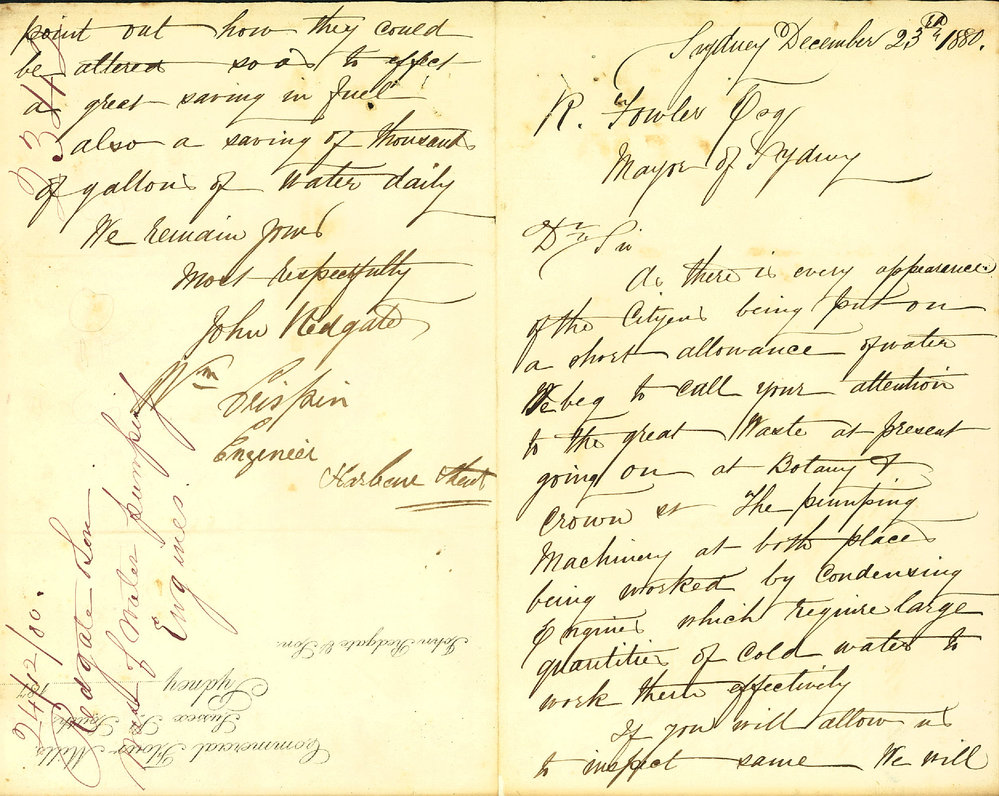 Sydney December 23rd 1880.
R. Fowler Esq
Mayor of Sydney
Dr Sir
As there is every appearence
of the Cityens being put on
a short allowance of water
We beg to call your attention
to the great Waste at present
going on at Botany &
Crown st The pumping
Machinery at both places
being worked by Condensing
Engines which require large
quantities of Cold water to
work them effectively
If you will allow us
to inspect same We will
point out how they could
be altered so as to effect
a great saving in fuel
also a saving of thousands
of gallons of water daily
We remain yours
Most respectfully
John Redgate
Wm Crispin
Engineer
Harbour Street
24/12/80.
Redgate & Son
Waste of Water pumping
Engines.
Commercial Flour Mills
Sussex St. South
Sydney
187
John Redgate & Son